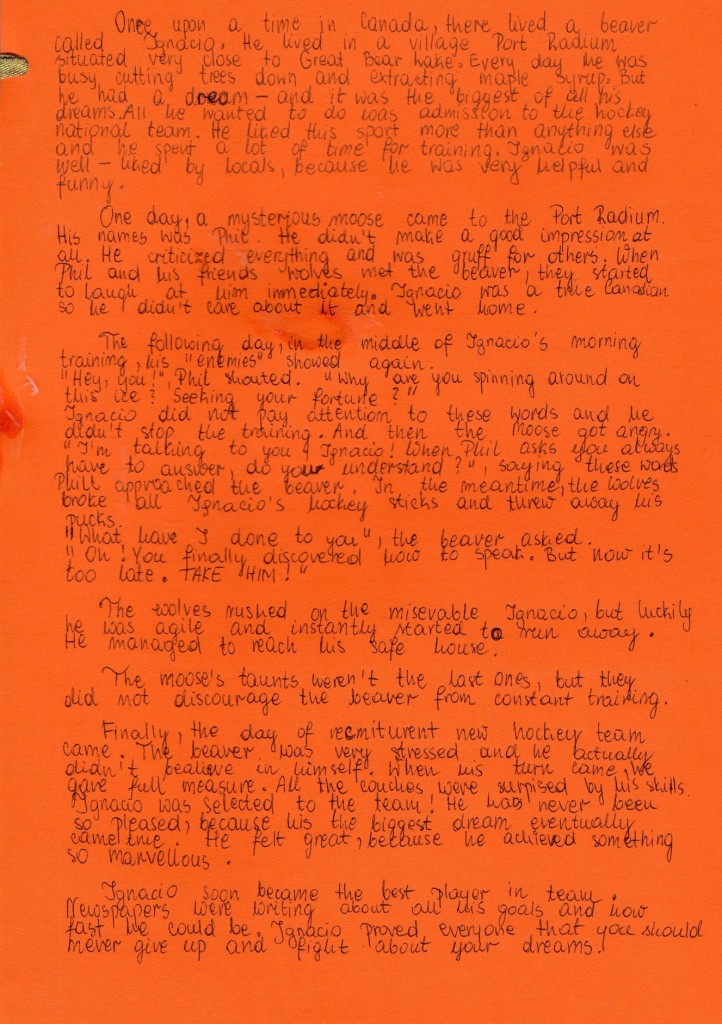 Once upon a time in Canada, there lived a beaver
called Ignacio. He lived in a village Port Radium
situated very close to Great Bear Lake. Every day he was
busy cutting trees down and extracting maple syrup. But
he had a dream – and it was the biggest of all his
dreams. All he wanted to do was admission to the hockey
national team. He liked this sport more than anything else
and he spent a lot of time for training. Ignacio was
well – liked by locals, because he was very helpful and
funny.
One day, a mysterious moose came to the Port Radium.
His names was Phil. He didn't make a good impression at
all. He criticized everything and was gruff for others. When
Phil and his friends wolves met the beaver, they started
to laugh at him immediately. Ignacio was a true Canadian
so he didn't care about it and went home.
The following day, in the middle of Ignacio's morning
training, his "enemies" showed again.
"Hey, you!", Phil shouted. "Why are you spinning around on
this ice? Seeking your fortune?"
Ignacio did not pay attention to these words and he
didn't stop the training. And then the moose got angry.
"I'm talking to you, Ignacio! When Phil asks you always
have to answer, do you understand?", saying these words
Phill approached the beaver. In the meantime, the wolves
broke all Ignacio's hockey sticks and threw away his
pucks.
"What have I done to you", the beaver asked.
"Oh! You finally discovered how to speak. But now it's
too late. TAKE HIM!"
The wolves rushed on the miserable Ignacio, but luckily
he was agile and instantly started to run away.
He managed to reach his safe house.
The moose's taunts weren't the last ones, but they
did not discourage the beaver from constant training.
Finally, the day of recruitment new hockey team
came. The beaver was very stressed and he actually
didn't bealieve in himself. When his turn came, he
gave full measure. All the couches were surpised by his skills.
Ignacio was selected to the team! He had never been
so pleased, because his the biggest dream eventually
came true. He felt great, because he achieved something
so marvellous.
Ignacio soon became the best player in team.
Newspapers were writing about all his goals and how
fast he could be. Ignacio proved everyone that you should
never give up and fight about your dreams!